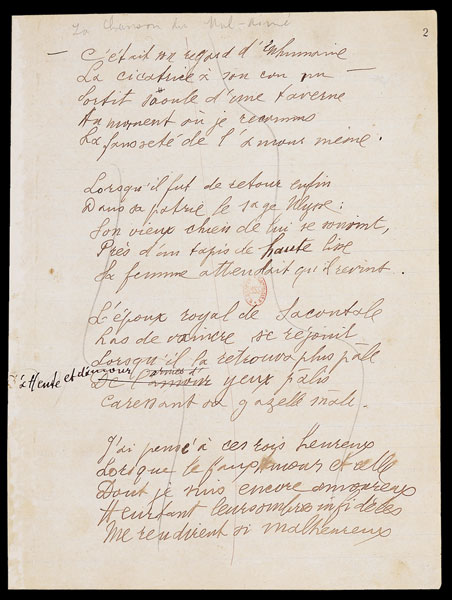 La Chanson du Mal-aimé
2
C'était son regard d'inhumaine
La cicatrice à son cou nu
Sortit saoule d'une taverne
Au moment où je reconnus
La fausseté de l'amour même.
Lorsqu'il fut de retour enfin
Dans sa patrie le sage Ulysse
Son vieux chien de lui se souvint,
Près d'un tapis de haute lice
Sa femme attendait qu'il revînt.
L'époux royal de Sacontale
Las de vaincre se réjouit
Lorsqu'il la retrouva plus pâle
d'attente et d'amour yeux pâlis
Caressant sa gazelle mâle.
J'ai pensé à ces rois heureux
Lorsque le faux amour et celle
Dont je suis encore amoureux
Heurtant leurs ombres infidèles
Me rendirent si malheureux